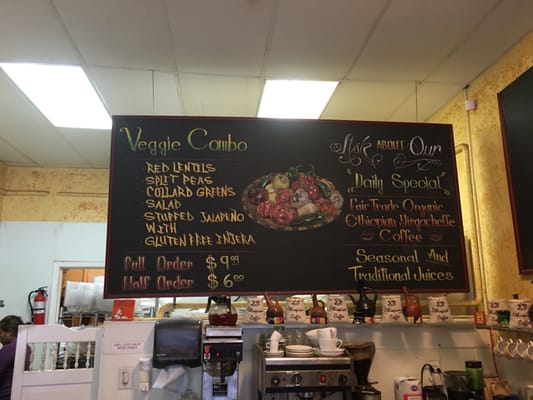 Veggie Combo
RED LENTILS
SPLIT PEAS
COLLARD GREENS
SALAD
STUFFED JALAPEÑO
WITH
GLUTEN FREE INJERA
Full Order $9.99
Half Order $6.00
Ask ABOUT OUR
"Daily Special"
Fair Trade Organic
Ethiopian Yirgacheffe
Coffee
Seasonal And
Traditional Juices